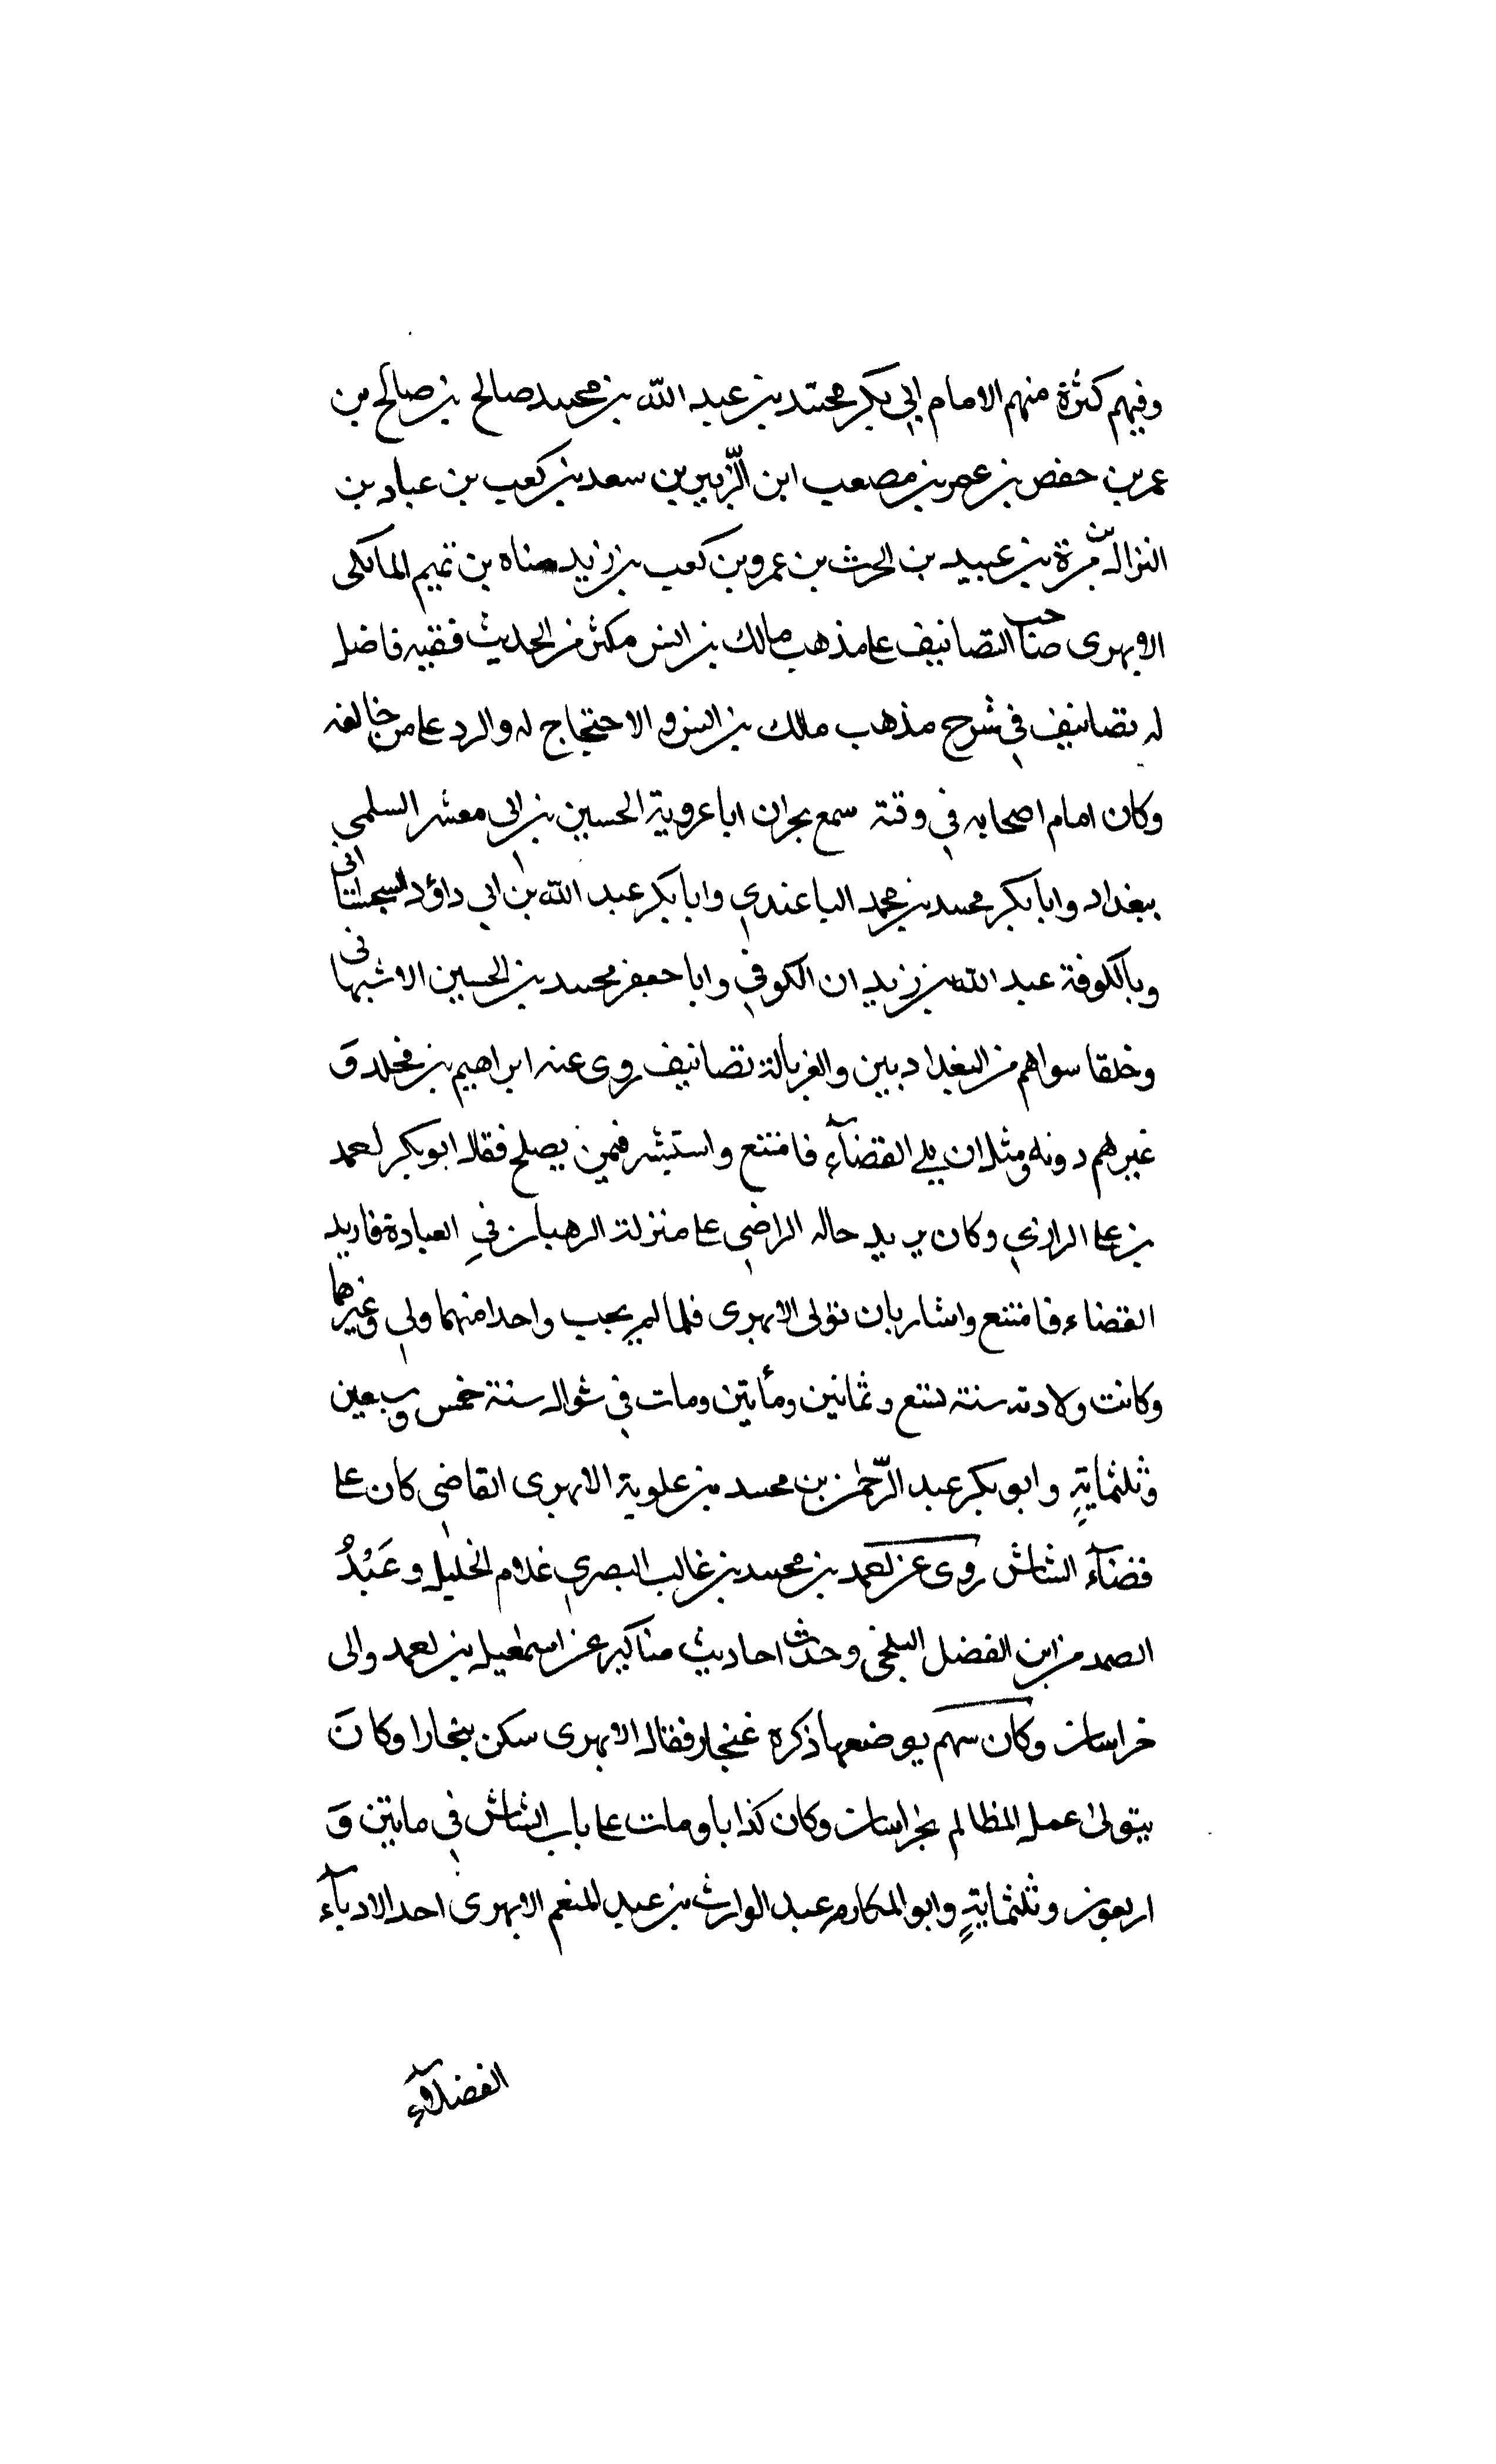 وفيهم كثرة منهم الامام ابي بكر محمد بن عبد الله بن محمد صالح بن صالح بن
عمر بن حفص بن عمر بن مصعب ابن الزّبير بن سعد بن كعب بن عباد بن
النزال بن مرة بن عبيد بن الحرث بن عمرو بن كعب بن زيد مناه بن تميم المالكى
الابهرى صاحب التصانيف على مذهب مالك بن انس مكثر من الحديث فقيه فاضل
له تصانيف في شرح مذهب مالك بن انس و الاحتجاج له والرد على من خالفه
وكان امام اصحابه في وقته سمع بحران ابا عروبة الحسين بن ابى معشر السلمي
ببغداد وابا بكر محمد بن محمد الباغندي وابا بكر عبد الله بن ابي داؤد السجستانى
وبالكوفة عبد الله بن زيدان الكوفي وابا جعفر محمد بن الحسين الاشبهانى
وخلقا سواهم من البغداديين والغربا له تصانيف روى عنه ابراهيم بن مخلد وَ
غيرهم دونه ومثل ان يلي القضآء فامتنع واستشر فيمن يصلح فقال ابو بكر احمد
بن على الرازي وكان يريد حاله الراضي على منزلة الرهبان في العبادة فاريد
القضاء فامتنع واشار بان تولى الابهرى فلما لم يجب واحدا منهما ولي غيرهما
وكانت ولادته سنة تسع وثمانين ومأيتين ومات في شوال سنة خمس وسبعين
وثلثمايةٍ وابو بكر عبد الرّحمن بن محمد بن علوية الابهرى القاضي كان على
قضآء الشاش روى عن احمد بن محمد بن غالب البصري غلام الخليل وعَبْدُ
الصمد من ابن الفضل البلخي وحدث احاديث مناكير عن اسمعيل بن احمد والى
خراسان وكان سهم بوضعها ذكره غنجار فقال الابهرى سكن بخارا وكانَ
يتولى عمل المظالم بخراسان وكان كذابا ومات على باب الشاش في مايتين وَ
اربعون وثلثمايةٍ وابو المكارم عبد الوارث بن عبد المنعم الابهرى احد الادبآء
الفضلآء